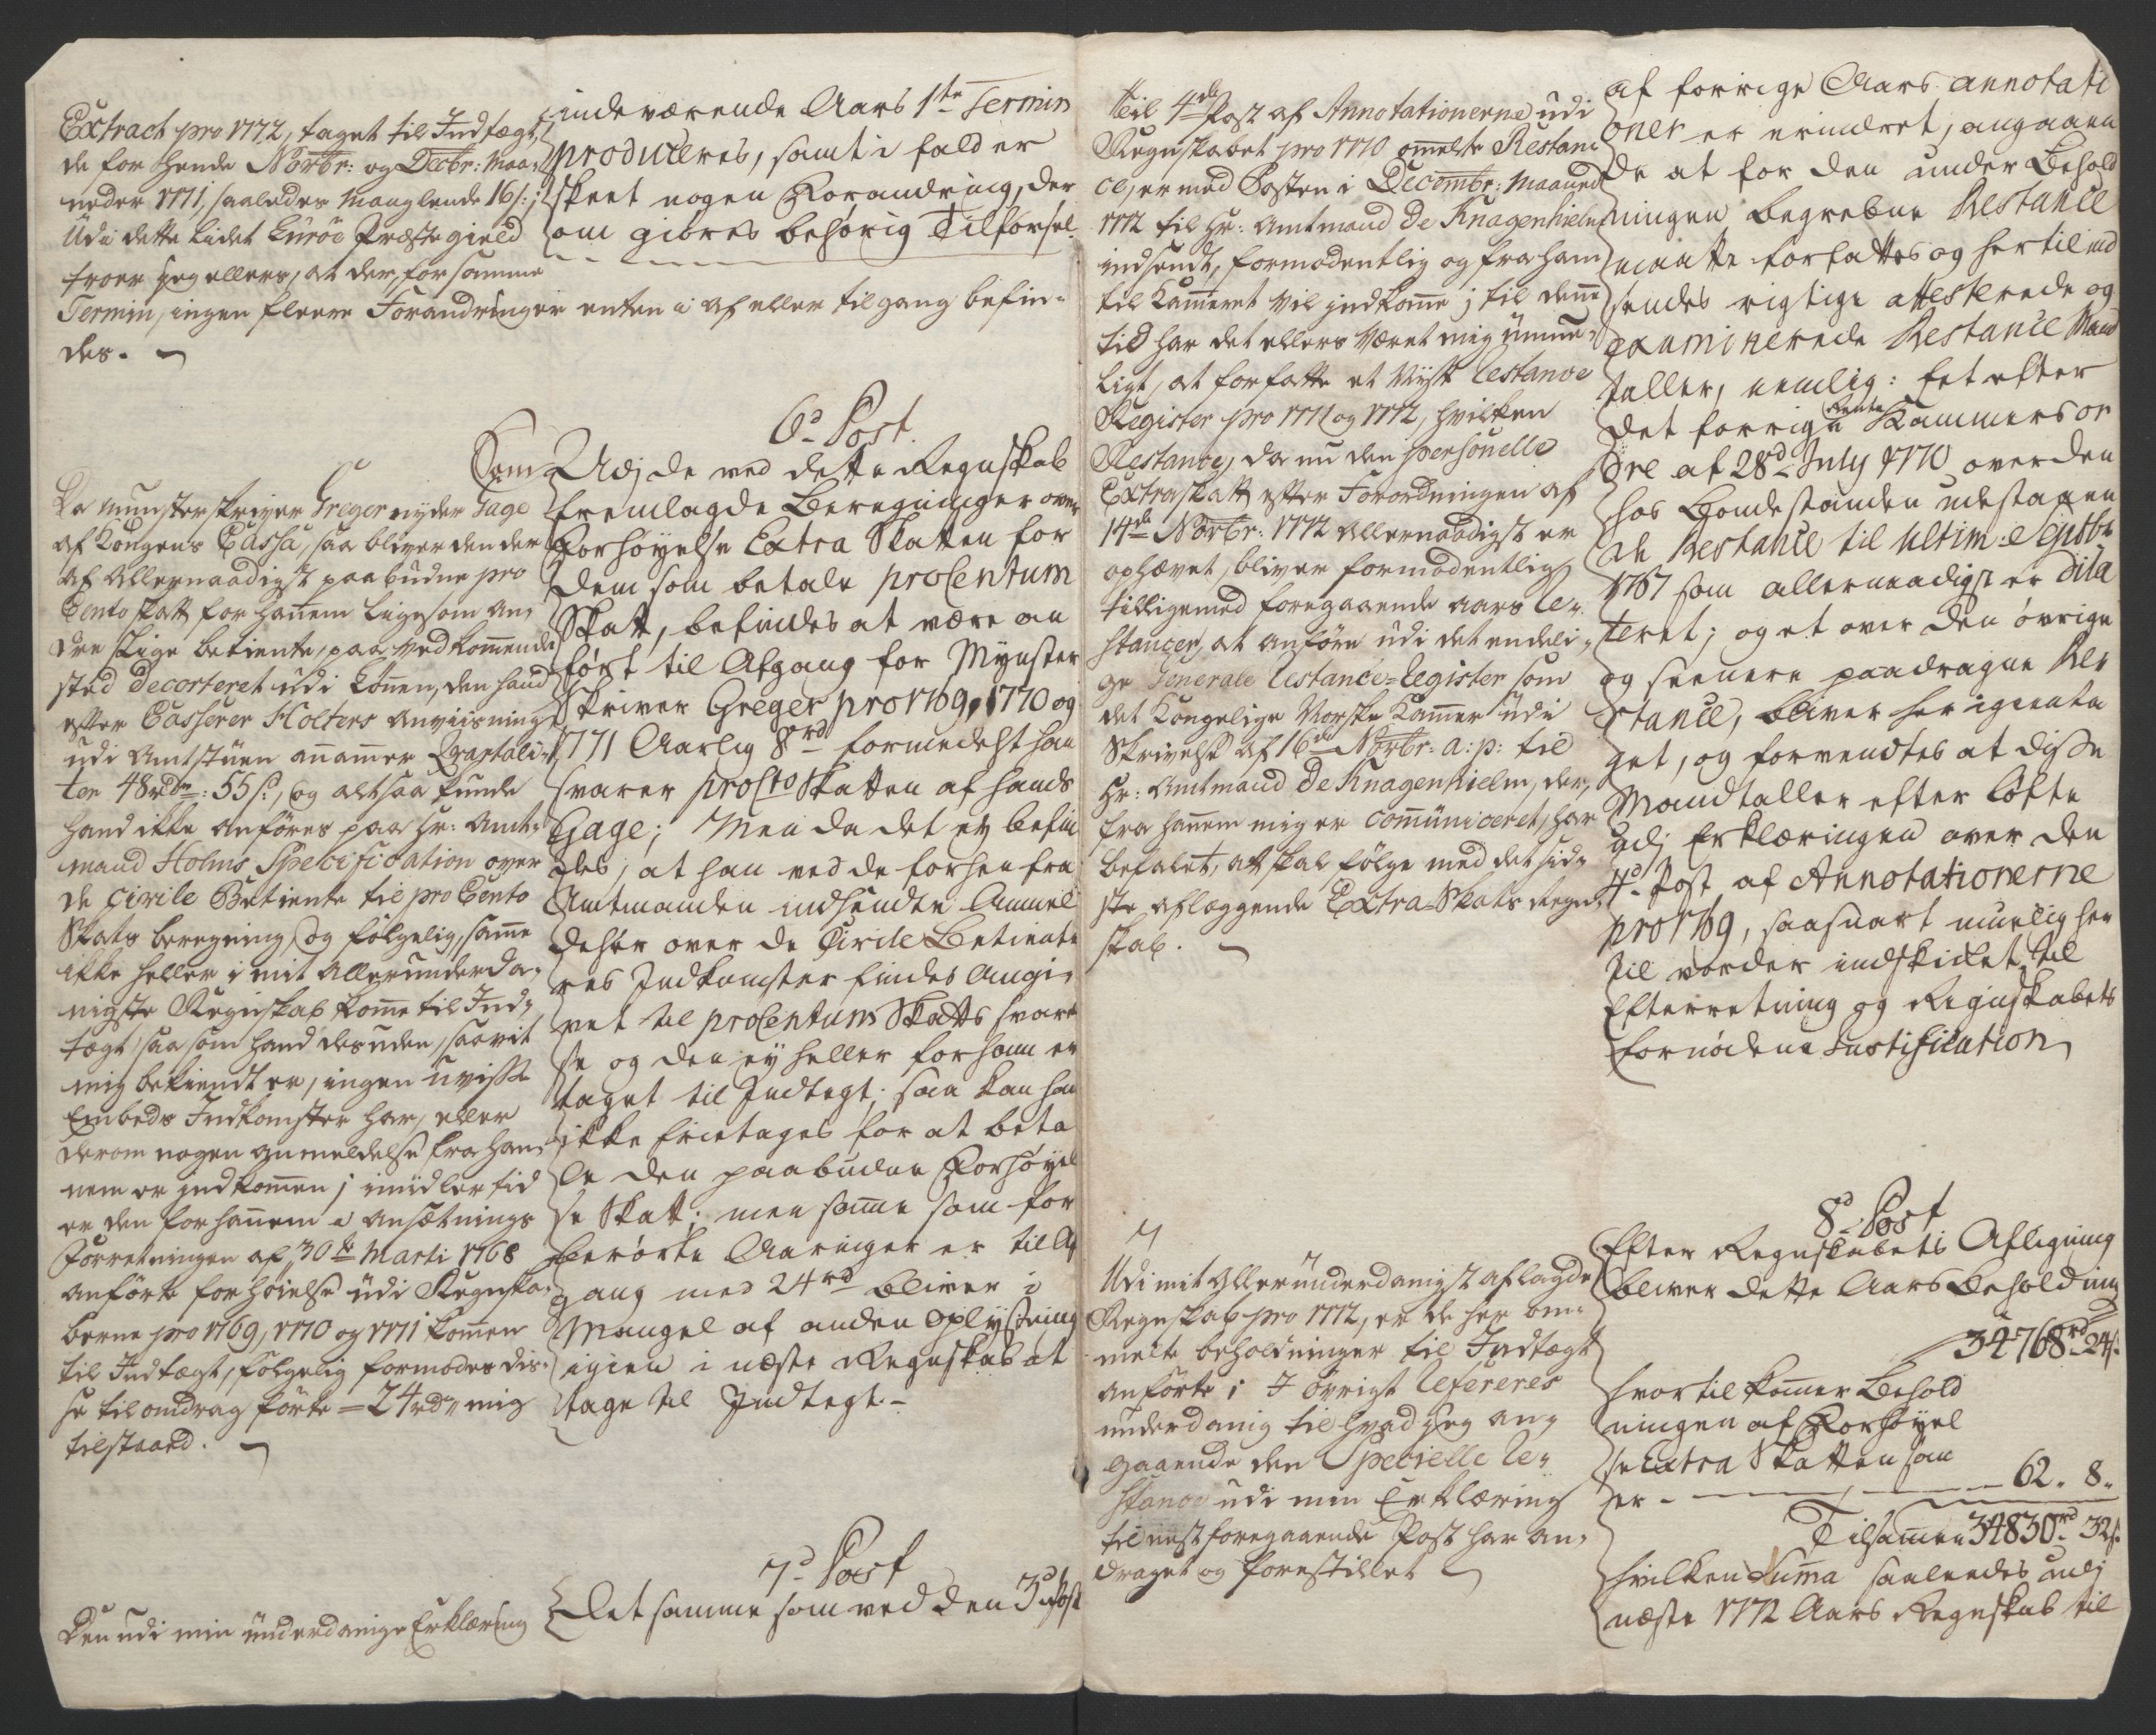 Extract pro 1772, taget til Indtægt,
de for hende Novbr: og Decbr: Maa-
neder 1771, saaledes manglende 16 s:;
Udi dette lidet Luröe Præstegield
troer jeg ellers, at der, for samme
Termin, ingen fleere Forandringer enten i af eller tilgang befin-
des.
Da Munsterskriver Greger nyder Gage
af Kongens Cassa, saa bliver den der
af allernaadigst paabudne pro
Cento skatt for hannem ligesom an-
dre slige betiente, paa vedkommende
stæd decorteret udi Lönnen, den hand
efter Casserer Holters Anviisning
udi Amtstuen annammer Qvartali-
ter 48 rdr: 55 s:, og altsaa kunde
hand ikke anføres paa Hr: Amt-
mand Holms Specification over
de Civile Betiente til pro Cento
Skats beregning, og følgelig, samme
ikke heller i mit allerunderda-
nigste Regnskab komme til Ind-
tægt, saa som hand desuden, saavit
mig bekiendt er, ingen uvisse
Embeds Indkomster har, eller
derom nogen anmeldelse fra han-
nem er indkommen; imidlertid
er den for hannem i Ansætnings
Forretningen af 30te Marti 1768
anförte forhöielse udi Regnska-
berne pro 1769, 1770 og 1771 kommen
til Indtægt, følgelig formodes dis-
se til omdrag förte = 24 rdr mig
tilstaaed.
Den udi min underdanige Erklæring
indeværende Aars 1te Termin
produceres, samt i fald er
skeet nogen Forandring, der
om giöres behörig Tilförsel.
6d Post.
Som
Udj de ved dette Regnskab
fremlagde Beregninger over
Forhöyelse Extra Skatten for
dem som betale proCentum
Skatt, befindes at være an
fört til Afgang for Mynster
Skriver Greger pro 1769, 1770 og
1771 Aarlig 8 rd formedelst han
svarer proCto Skatten af hands
Gage; Men da det ey befin
des, at han ved de forhen fra
Amtmanden indsendte Anmel
delser over de Civile Betiente
res Indkomster findes Angi-
vet til proCentum Skatts svarel
se og den ey heller for ham er
taget til Indtegt; saa kan han
ikke frietages for at beta
le den paabudne Forhöyel
se Skat; men samme som for
berörte Aaringer er til Af
gang med 24 rd bliver i
Mangel af anden Oplysning
igien i næste Regnskab at
tage til Indtegt.-
7d Post
Det samme som ved den 3d Post
til 4de Post af Annotationerne udi
Regnskabet pro 1770 ommelte Restan-
ce, er med Posten i Decembr: Maaned
1772 til Hr: Amtmand De Knagenhielm
indsendt, formodentlig og fra ham
til Kammeret vil indkomme; til denne
tid har det ellers været mig umue-
ligt, at forfatte et Nyt Restance
Register pro 1771 og 1772, hvilken
Restance, da nu den personelle
Extraskatt efter Forordningen af
14de Novbr: 1772 allernaadigst er
ophævet, bliver formodentlig
tilligemed foregaaende Aars Re-
stancer, at anføre udi det endeli-
ge Generale Restance-Register som
det Kongelige Norske Kammer udi
Skrivelse af 16de Novbr: a: p: til
Hr: Amtmand De Knagenhielm, der,
fra hannem mig er communiceret, har
befalet, at skal følge med det sid-
ste aflæggende Extra-Skats Regn-
skab.
Udi mit Allerunderdanigst aflagde
Regnskab pro 1772, er de her om-
melte beholdninger til Indtægt
anförte; I øvrigt refereres
underdanig til hvad jeg an-
gaaende den Specielle Re-
stance udi min Erklæring
til nestforegaaende Post har an-
draget og forestillet
af forrige Aars annotati
oner er erindret, angaaen
de at for den under Behold
ningen begrebne Restance
maatte forfattes og hertil ind
sendes rigtige attesterede og
examinerede Restance Mand
taller, nemlig: Eet efter
det forrige Rente Kammers or
dre af 28d July 1770 over den
hos Bondestanden udestaaen
de Restance til ultim: Septbr
1767 som allernaadigst er dila
teret; og et over den övrige
og seenere paadragne Re
stance, bliver her igienta
get, og forventes at disse
Mandtaller efter Löfte
udj Erklæringen over den
4d Post af Annotationerne
pro 1769, saasnart muelig her
til vorder indskicket til
Efterretning og Regnskabets
fornödene Justification
8d Post
Efter Regnskabets Afligning
bliver dette Aars Beholdning
34768 rd 24 s:
hvortil kommer Behold
ningen af Forhöyel
se Extra Skatten som
er - 62. 8.
Tilsammen 34830 rd 32 s:
hvilken Summa saaleedes udj
næste 1772 Aars Regnskab til